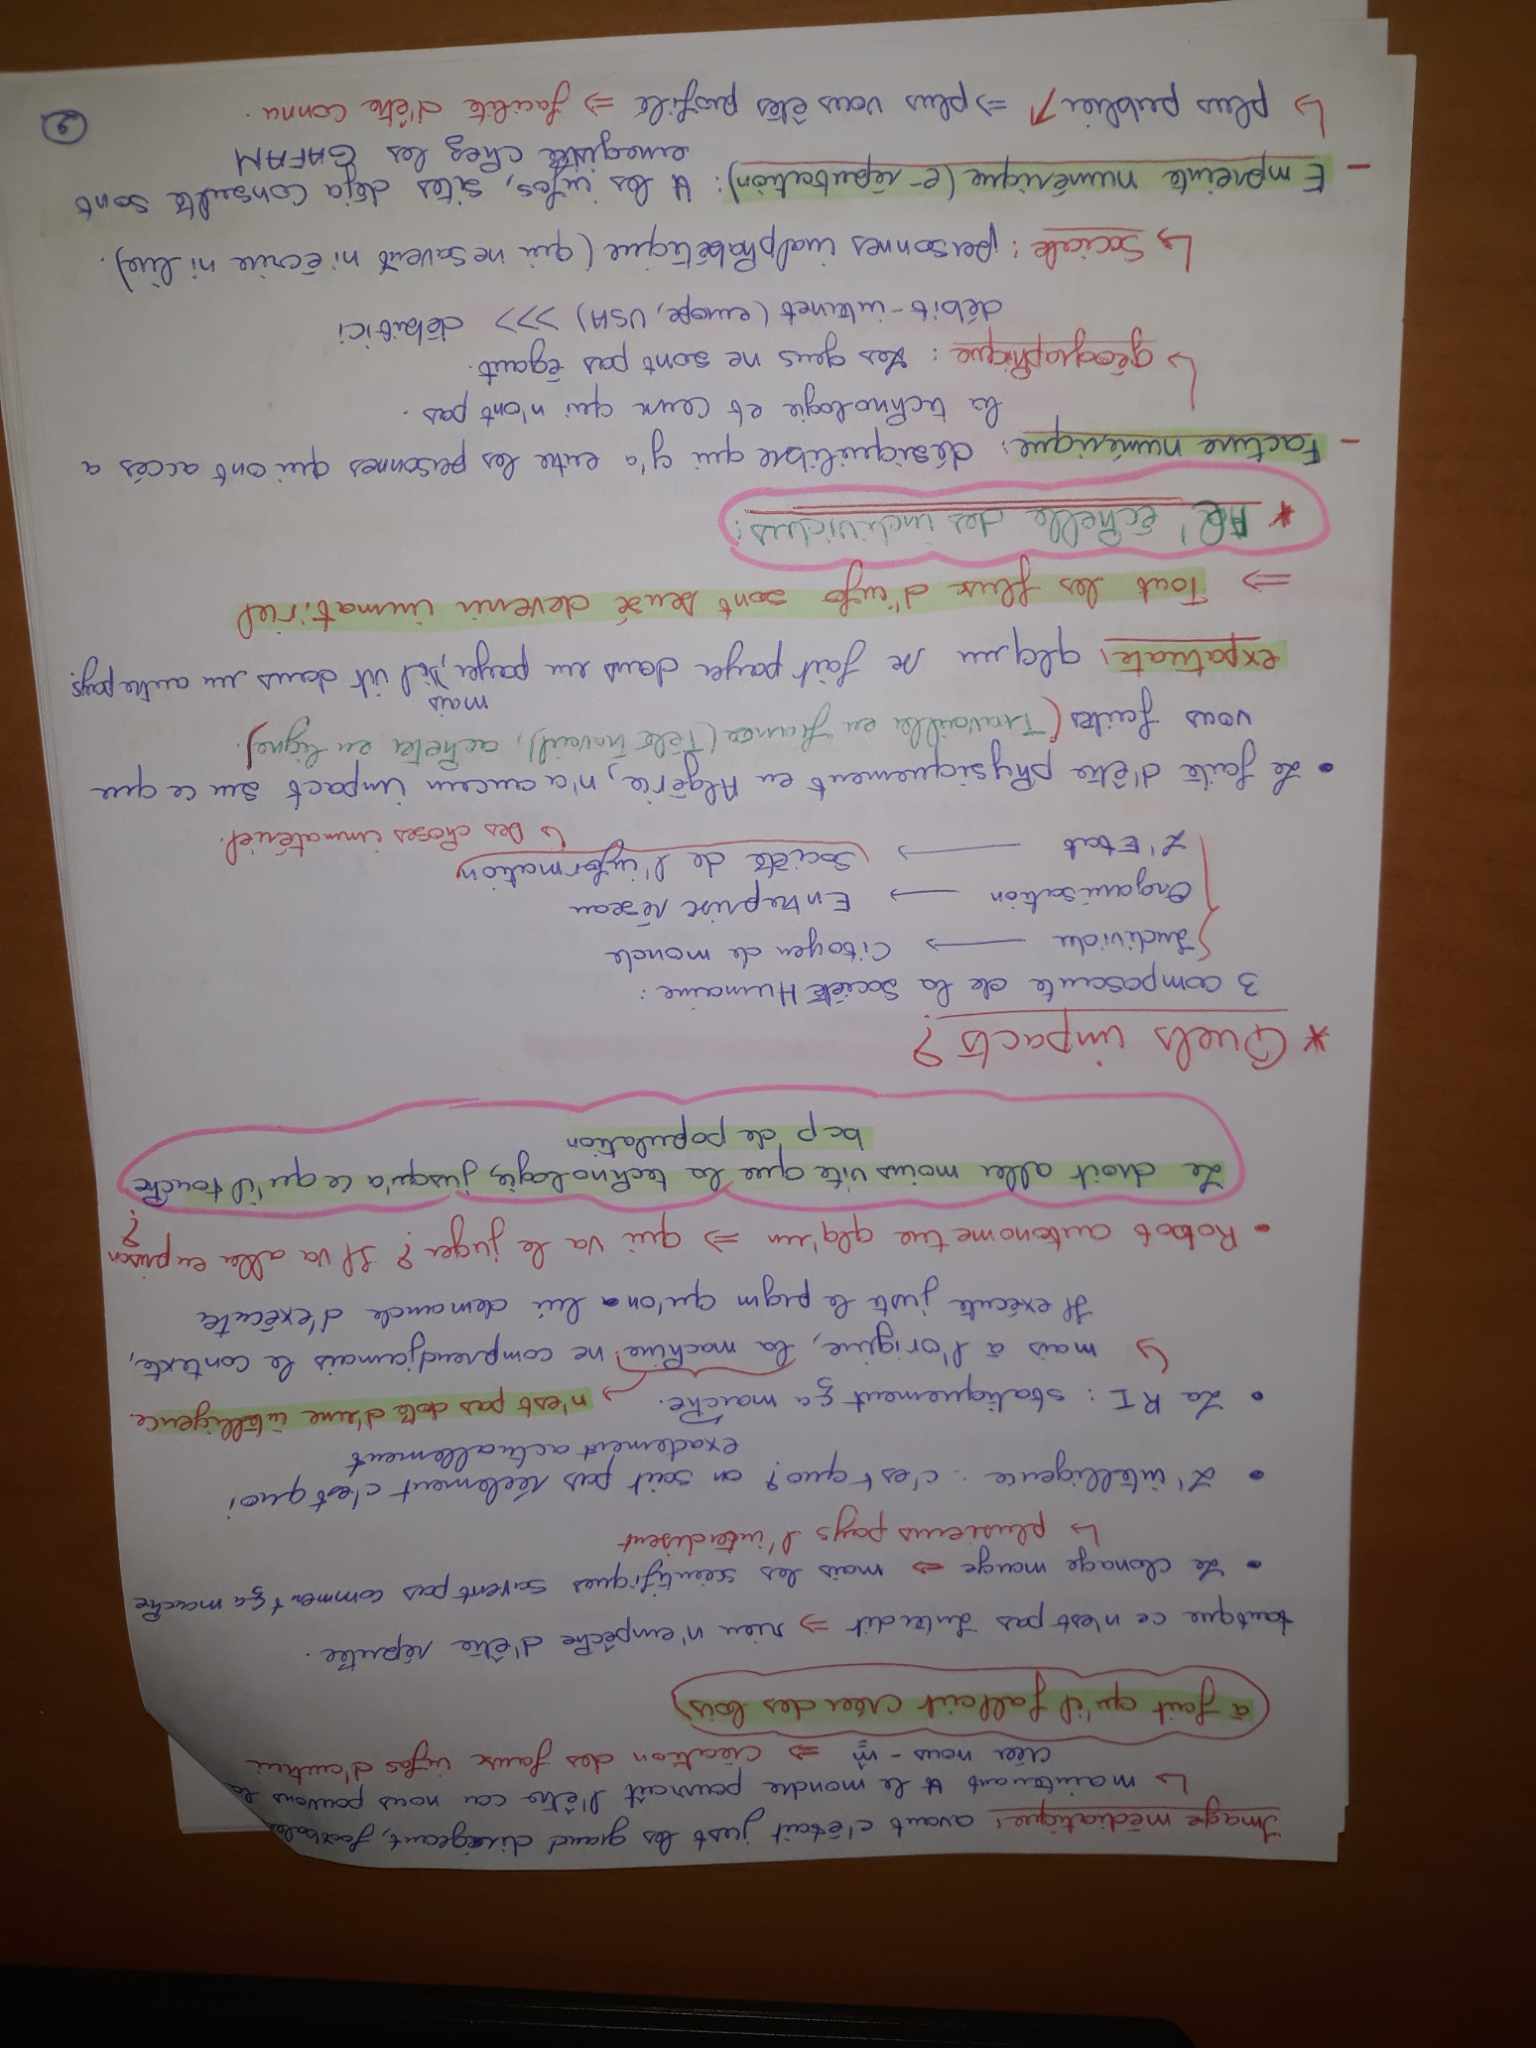 Image médiatique: avant c'était just les grand dirigeant, footbale
↳ maintenant ∀ le mondre pourrait l'être car nous pouvons la
créer nous-m̂ ⇒ création des faux infos d'autrui
à fait qu'il fallait créer des lois
tantque ce n'est pas Interdit ⇒ rien n'empêche d'être réputée.
• Le clonage mange ⇒ mais les scientifiques savent pas comment ça marche
↳ plusieurs pays l'interdisent
• L'intelligence : c'est quo? on sait pas réelement c'est quoi
exactement actuallement
• La RI : statiquement ça marche. → n'est pas doté d'une intelligence.
↳ mais à l'origine, la machine ne comprend jamais le contexte,
Il exécute juste le prgm qu'on a lui demande d'exécuter
• Robot autonome tue qlq'un ⇒ qui va le juger? Il va aller en prison
?
Le droit aller moins vite que la technologie, jusqu'a ce qu'il touche
bcp de population
* Quels impacts?
3 composante de la Société Humaine :
Individu → Citoyen de monde
Organisation → Entreprise réseau
L'Etat → Société de l'information
↳ Des choses immatériel.
• Le faite d'être physiquement en Algérie, n'a aucun impact sur ce que
vous faites (Travailler en france (Télé travail), acheter en ligne).
mais
expatriate: qlqun se fait payer dans un payer, il vit dans un autre pays.
⇒ Tout les flux d'info sont sensé devenir immatiriel
* A l'échelle des individus :
- Facture numérique: désiquilibre qui y'a entre les personnes qui ont accés a
la technologie et ceux qui n'ont pas.
↳ géographique : Les gens ne sont pas égaut.
débit-internet (europe, USA) >>> débit ici
↳ Sociale : personnes inalphabétique (qui ne savent ni écrire ni lire).
- Empreinte numérique (e-réputation): ∀ les infos, sites déja consulté sont
enregistré chez les GAFAM
↳ plus publier ↗ ⇒ plus vous êtes profilé ⇒ facilite d'être connu.
2